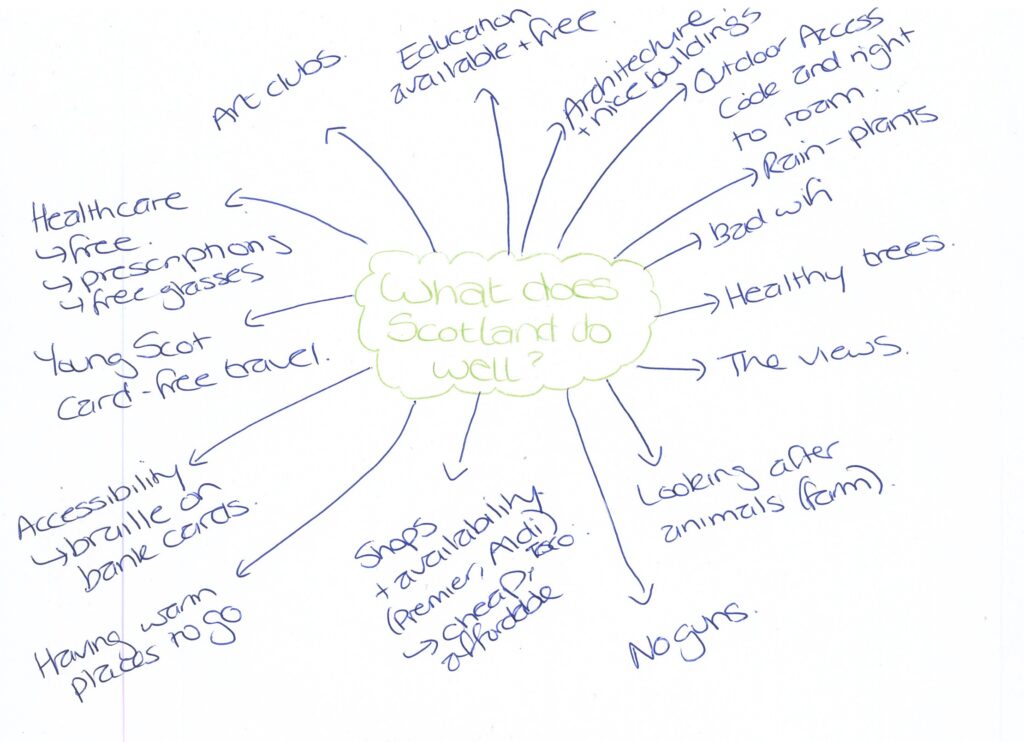 What does
Scotland do
well?
Art clubs.
Education
available + free
Architecture
+ nice buildings
Outdoor Access
Code and right
to roam.
Rain - plants
Bad wifi
Healthy trees.
The views.
Looking after
animals (farm).
No guns.
Shops
+ availability
(Premier, Aldi)
Tesco
→ cheap,
affordable
Having warm
places to go
Accessibility
↳ braille on
bank cards.
Young Scot
Card - free travel.
Healthcare
↳ free.
↳ prescriptions
↳ free glasses